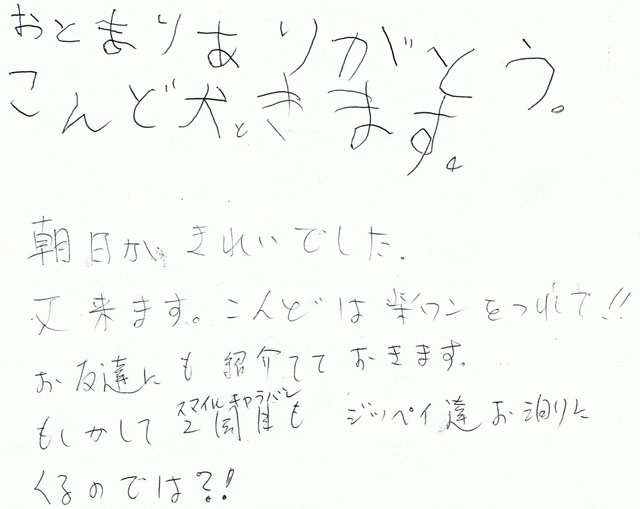 おとまりありがとう。
こんど犬ときます。
朝日が、きれいでした。
又来ます。こんどは柴ワンをつれて!!
お友達にも紹介てておきます。
スマイルキャラバン
もしかして2回目も ジッペイ達お泊りに
くるのでは?!